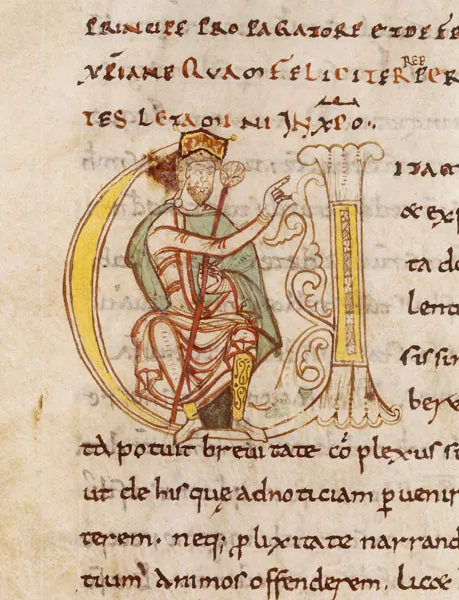 PRINCIPE PROPAGATORE ET DEFE
XP̄IANE QUAM FELICITER REP PER
TES LETAMINI IN XP̄O.
ITA
& exp
ta do
lenti
sissim
bere
ta potuit breuitate cō plexus s
ut de his quę ad noticiam ꝑuenir
terem. neq; ꝓlixitate narrand
tium animos offenderem. licæ